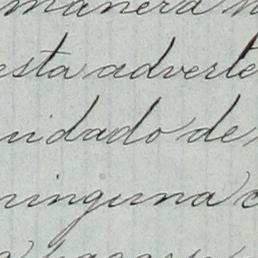 manera
esta adverte
uidado de
ninguna c